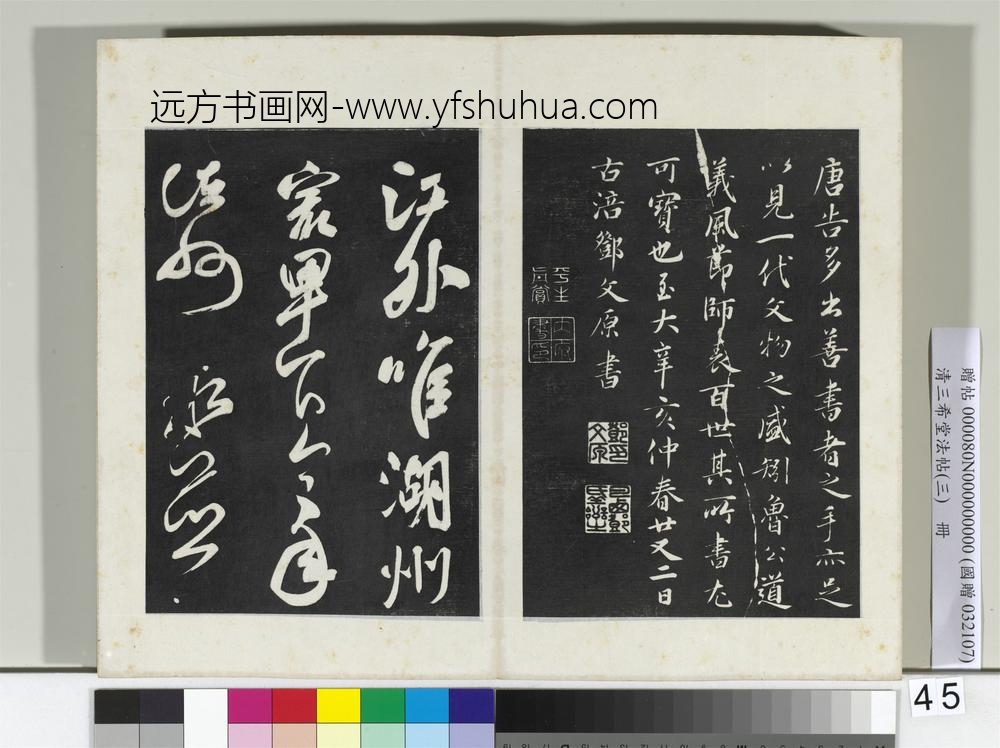 远方书画网-www.yfshuhua.com
唐告多出善書者之手亦足
以見一代文物之盛矧魯公道
義風節師表百世其所書尤
可寶也至大辛亥仲春廿又二日
古涪鄧文原書
平生
真賞
鄧印
文原
江外唯湖州
冣卑下今年
諸州水並
贈帖 000080N000000000 (國贈 032107)
清三希堂法帖(三) 冊
45